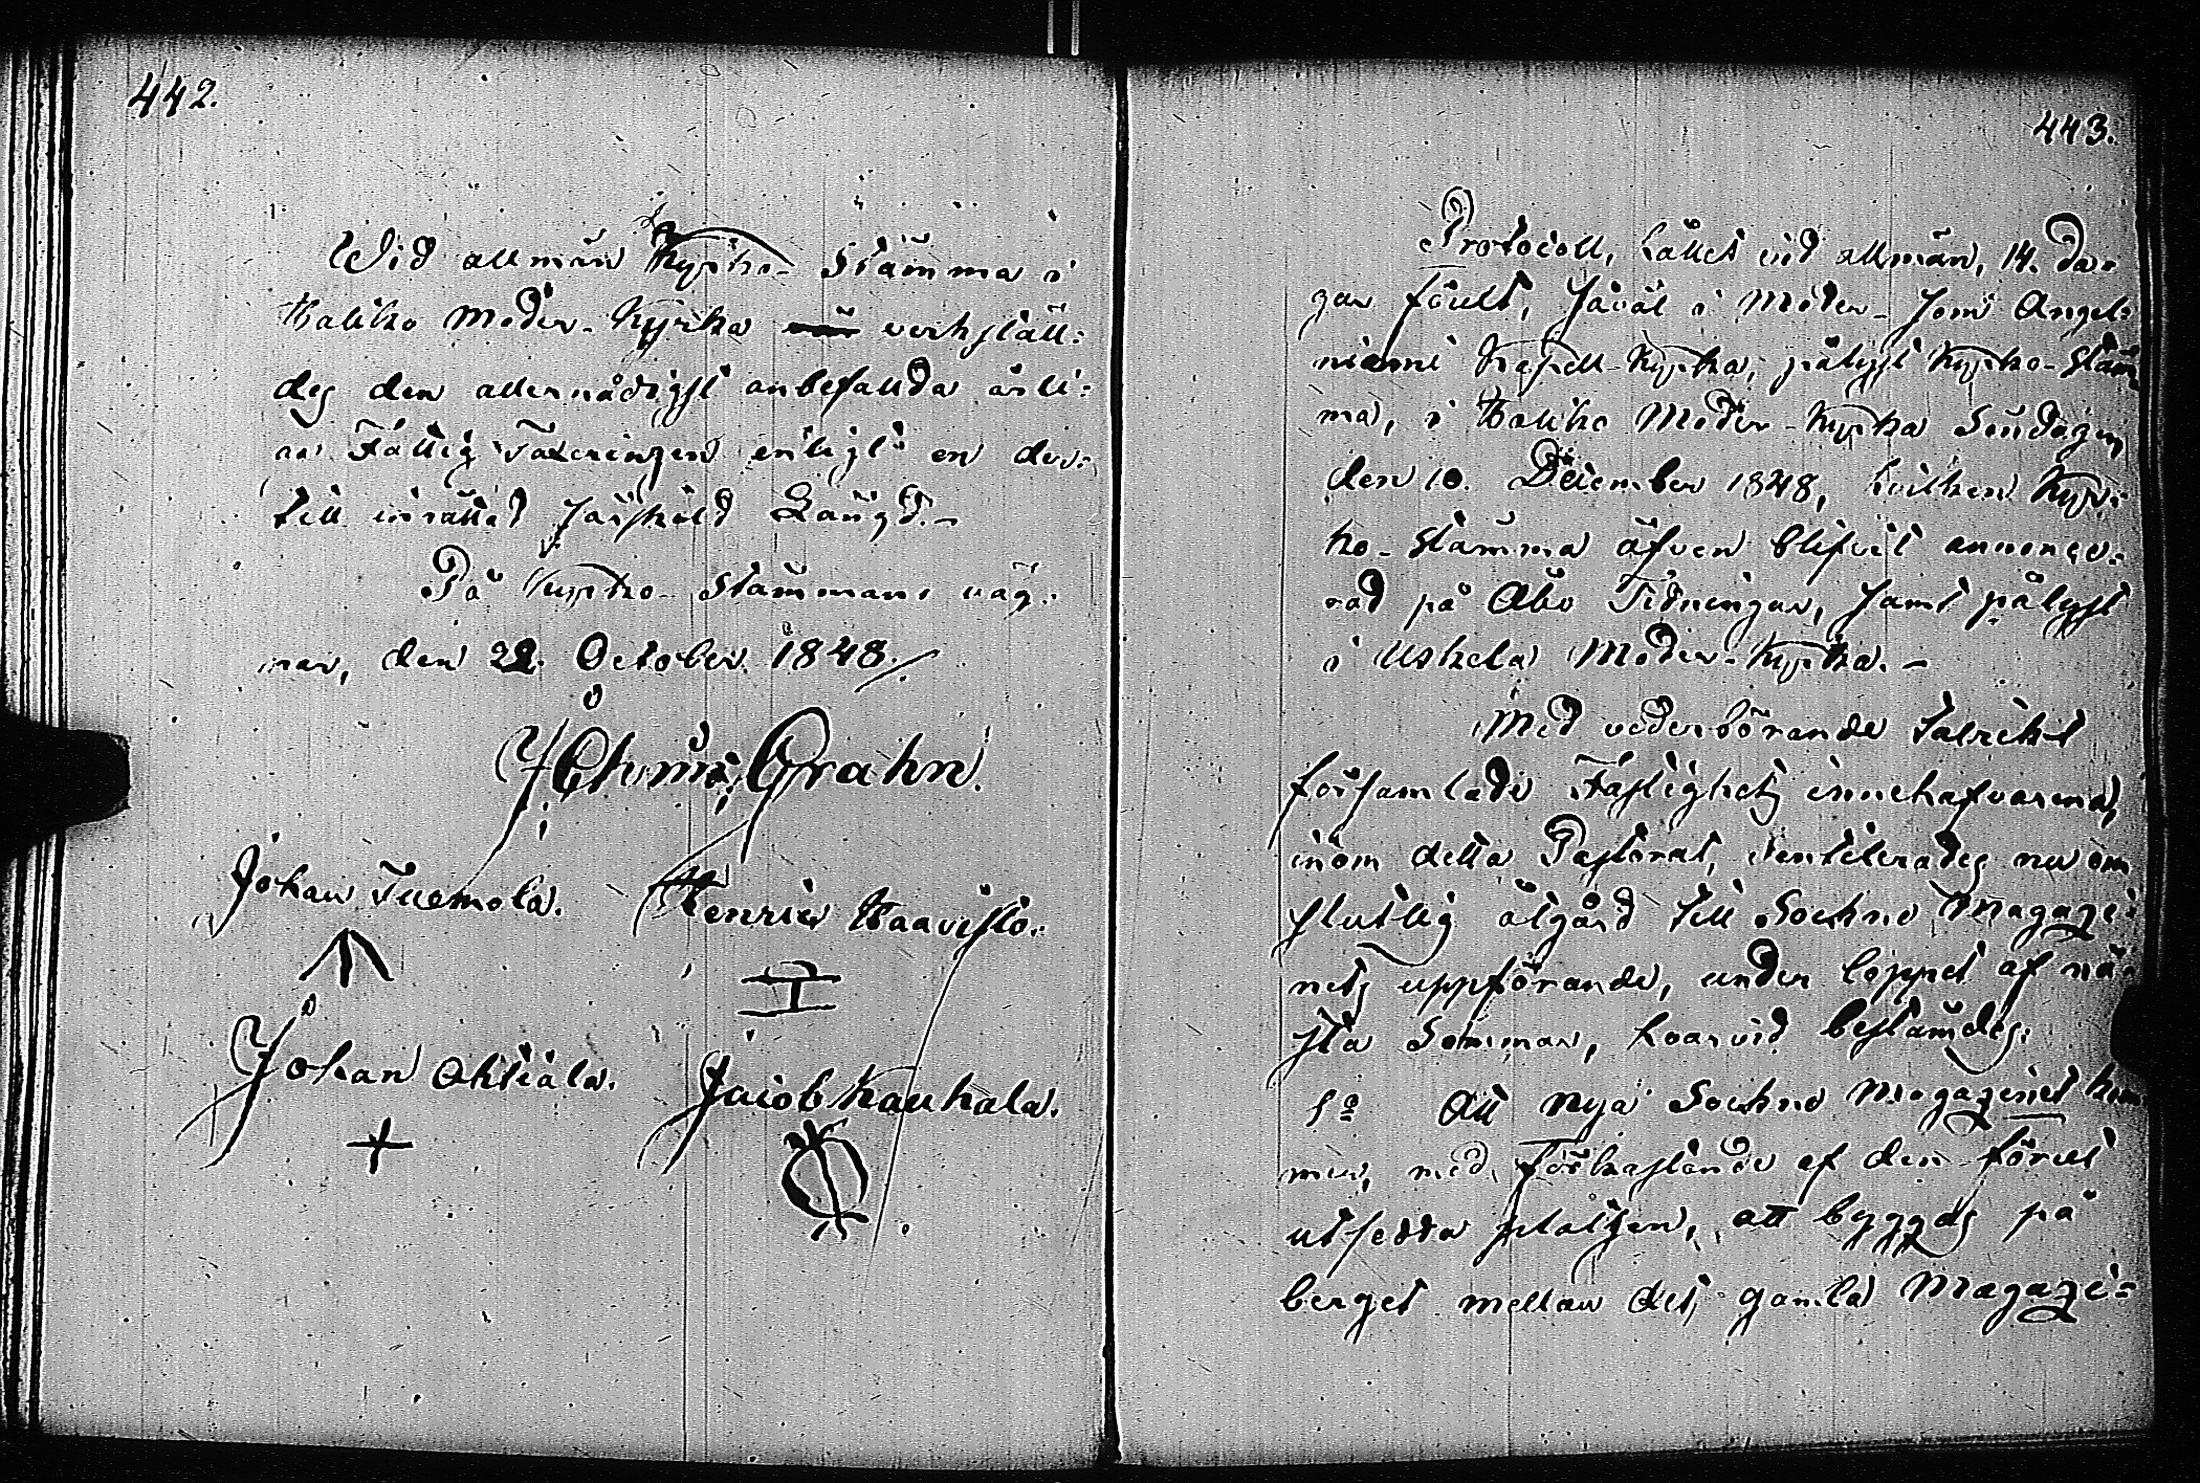 442.
Wid allmän Kyrko-Stämma i
Haliko Moder-Kyrka verkställ:
des den allernådigst anbefallda årli:
ga Fattig Taxeringen enligt en der:
till inrättad särskild Längd.-
På Kyrko-Stämmans väg:
nar, den 22. October 1848./.
Johan Tuomola. Henric Haavisto.
Johan Ahtiala. Jacob Kauhala.
443.
Protocoll, hållet vid allmän, 14. da:
gar förut, såväl i Moder- som Angel:
niemi Kapell-Kyrka, pålyst Kyrko-Stäm
ma, i Haliko Moder-Kyrka Söndagen
den 10. December 1848, hvilken Kyr:
ko-Stämma äfven blifvit annonce:
rad på Åbo Tidningar, samt pålyst
i Uskela Moder-Kyrka.-
Med vederbörande talrikt
församlade Fastighets innehafvarena,
inom detta Pastorat, ventilerades nu om
slutlig åtgärd till Sockne Magazi:
nets uppförande, under loppet af nä:
sta Sommar, hvarvid bestämdes:
1º Att nya Sockne Magazinet kom
mer, med förkastande af den förut
utsedda platsen, att byggas på
berget mellan det gamla Magazi=